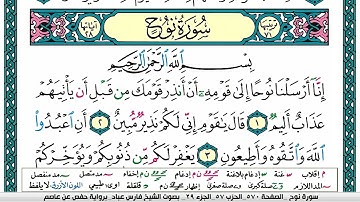 سُورَةُ نُوحٍ
بِسْمِ اللَّهِ الرَّحْمَٰنِ الرَّحِيمِ
إِنَّا أَرْسَلْنَا نُوحًا إِلَىٰ قَوْمِهِ أَنْ أَنذِرْ قَوْمَكَ مِن قَبْلِ أَن يَأْتِيَهُمْ
عَذَابٌ أَلِيمٌ ١ قَالَ يَٰقَوْمِ إِنِّي لَكُمْ نَذِيرٌ مُّبِينٌ ٢ أَنِ اعْبُدُوا
اللَّهَ وَاتَّقُوهُ وَأَطِيعُونِ ٣ يَغْفِرْ لَكُم مِّن ذُنُوبِكُمْ وَيُؤَخِّرْكُمْ
سورة نوح الصفحة ٥٧٠ الحزب ٥٧ الجزء ٢٩ بصوت الشيخ فارس عباد برواية حفص عن عاصم